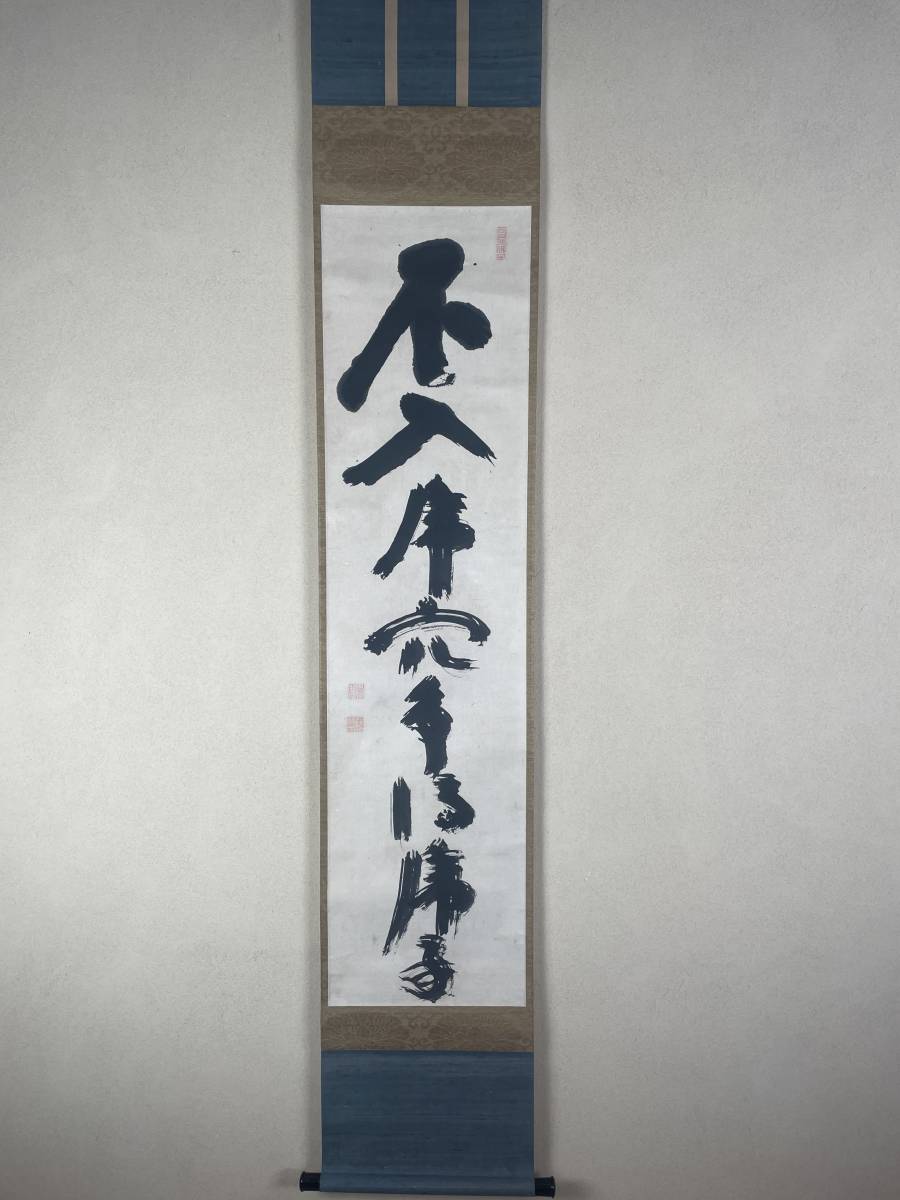 不入虎穴争得虎子